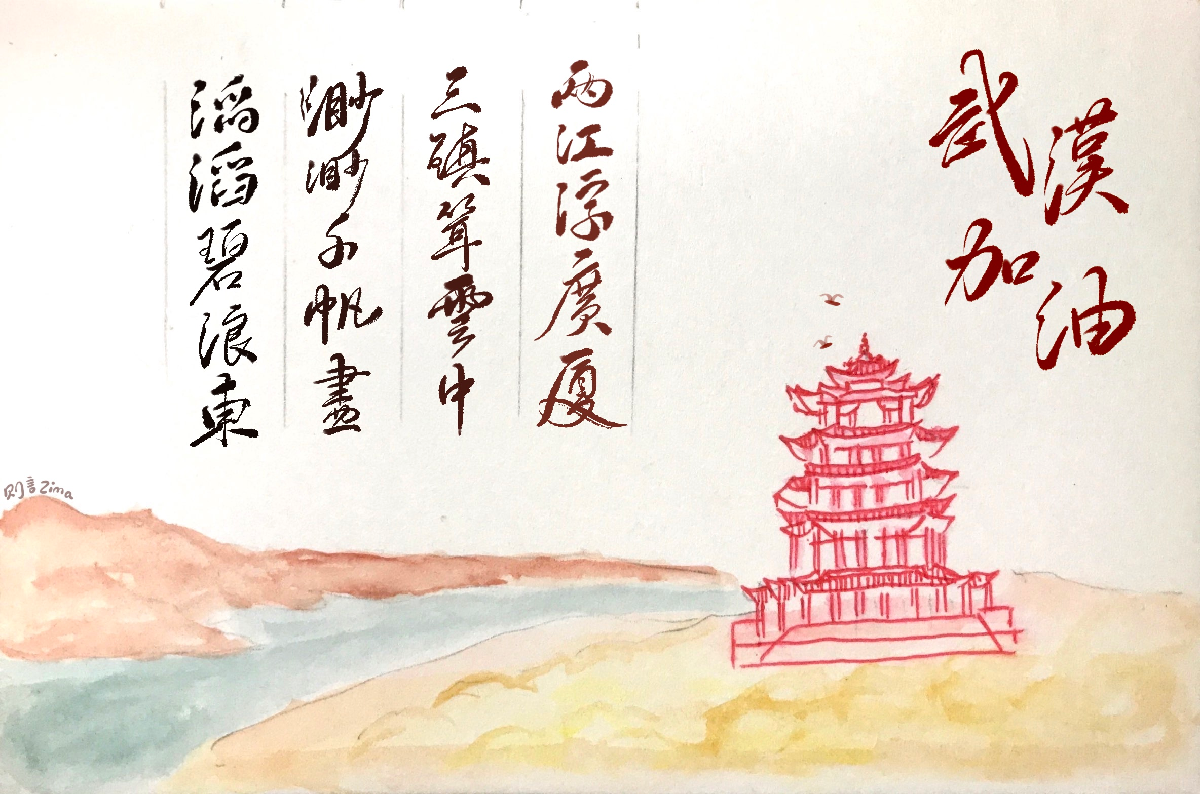 武漢
加油
两江浮廣厦
三鎮耸雲中
渺渺千帆盡
滔滔碧浪東
则言Zima